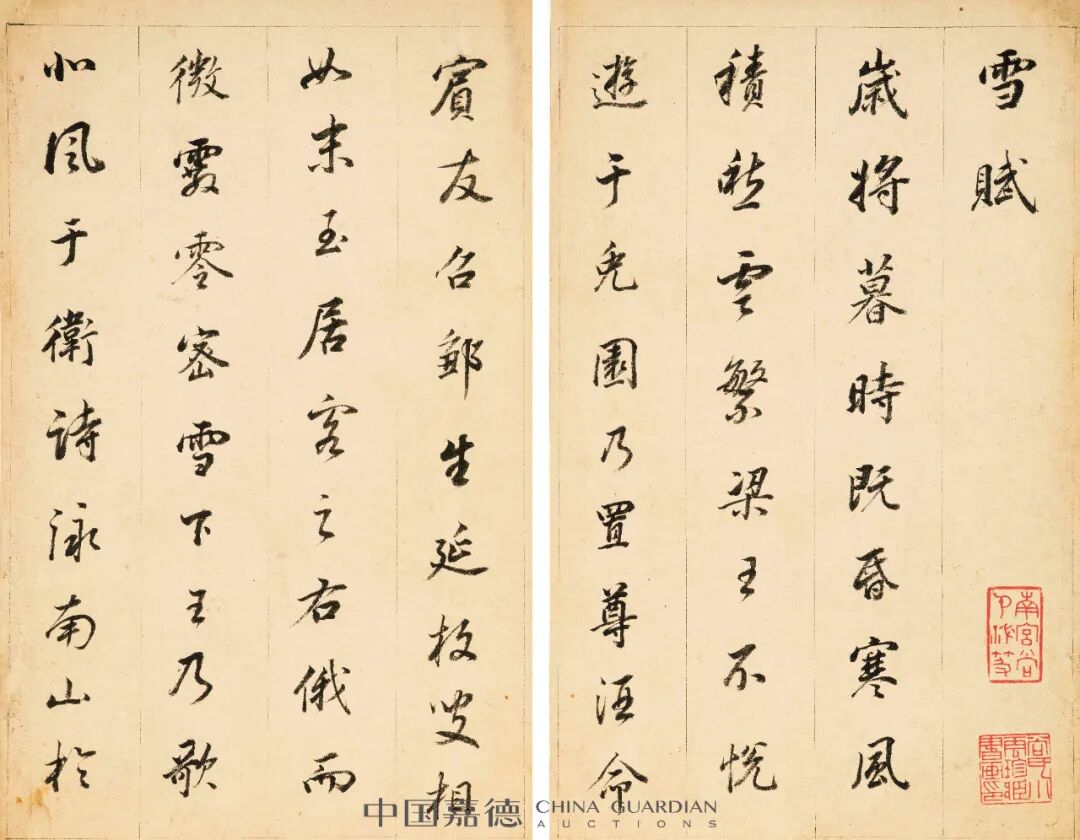 雪賦
歲將暮時既昏寒風
積愁雲繁梁王不悅
遊于兔園乃置尊酒命
賓友召鄒生延枚叟相
如末至居客之右俄而
微霰零密雪下王乃歌
北風于衛詩詠南山於
中国嘉德 CHINA GUARDIAN
AUCTIONS